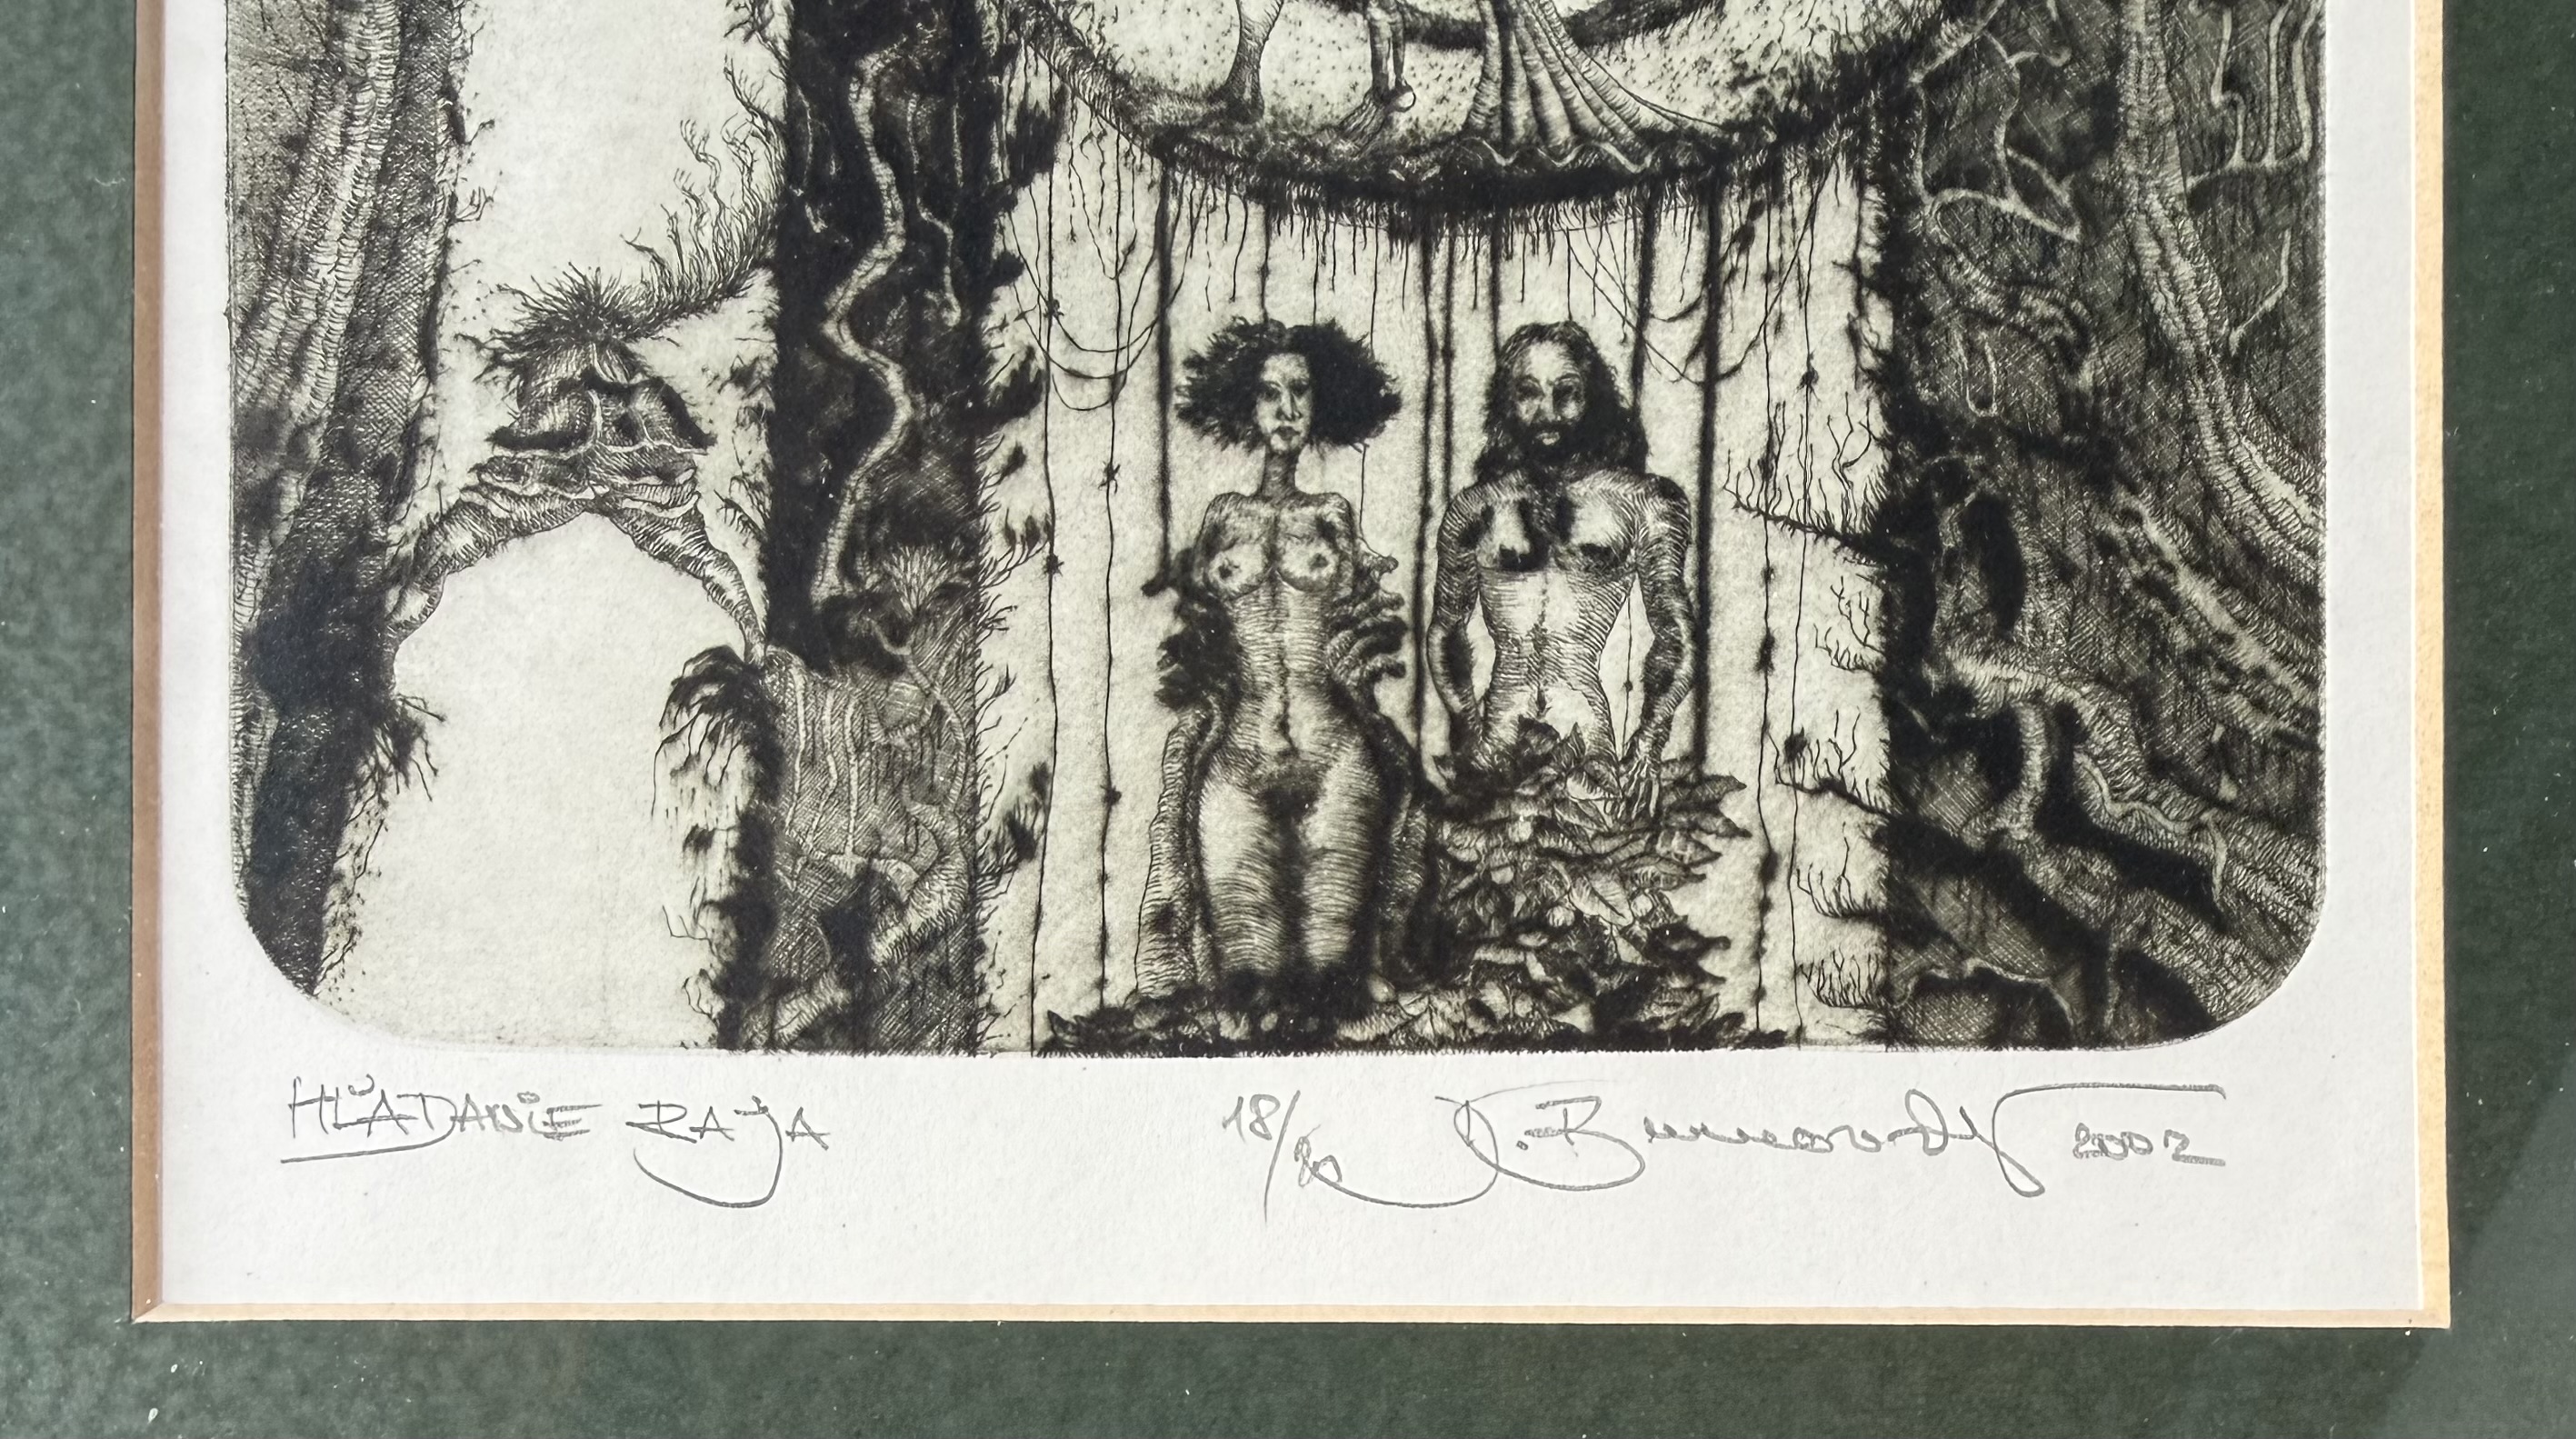 HĽADANIE RAJA 18/80 D. Brunovský 2002